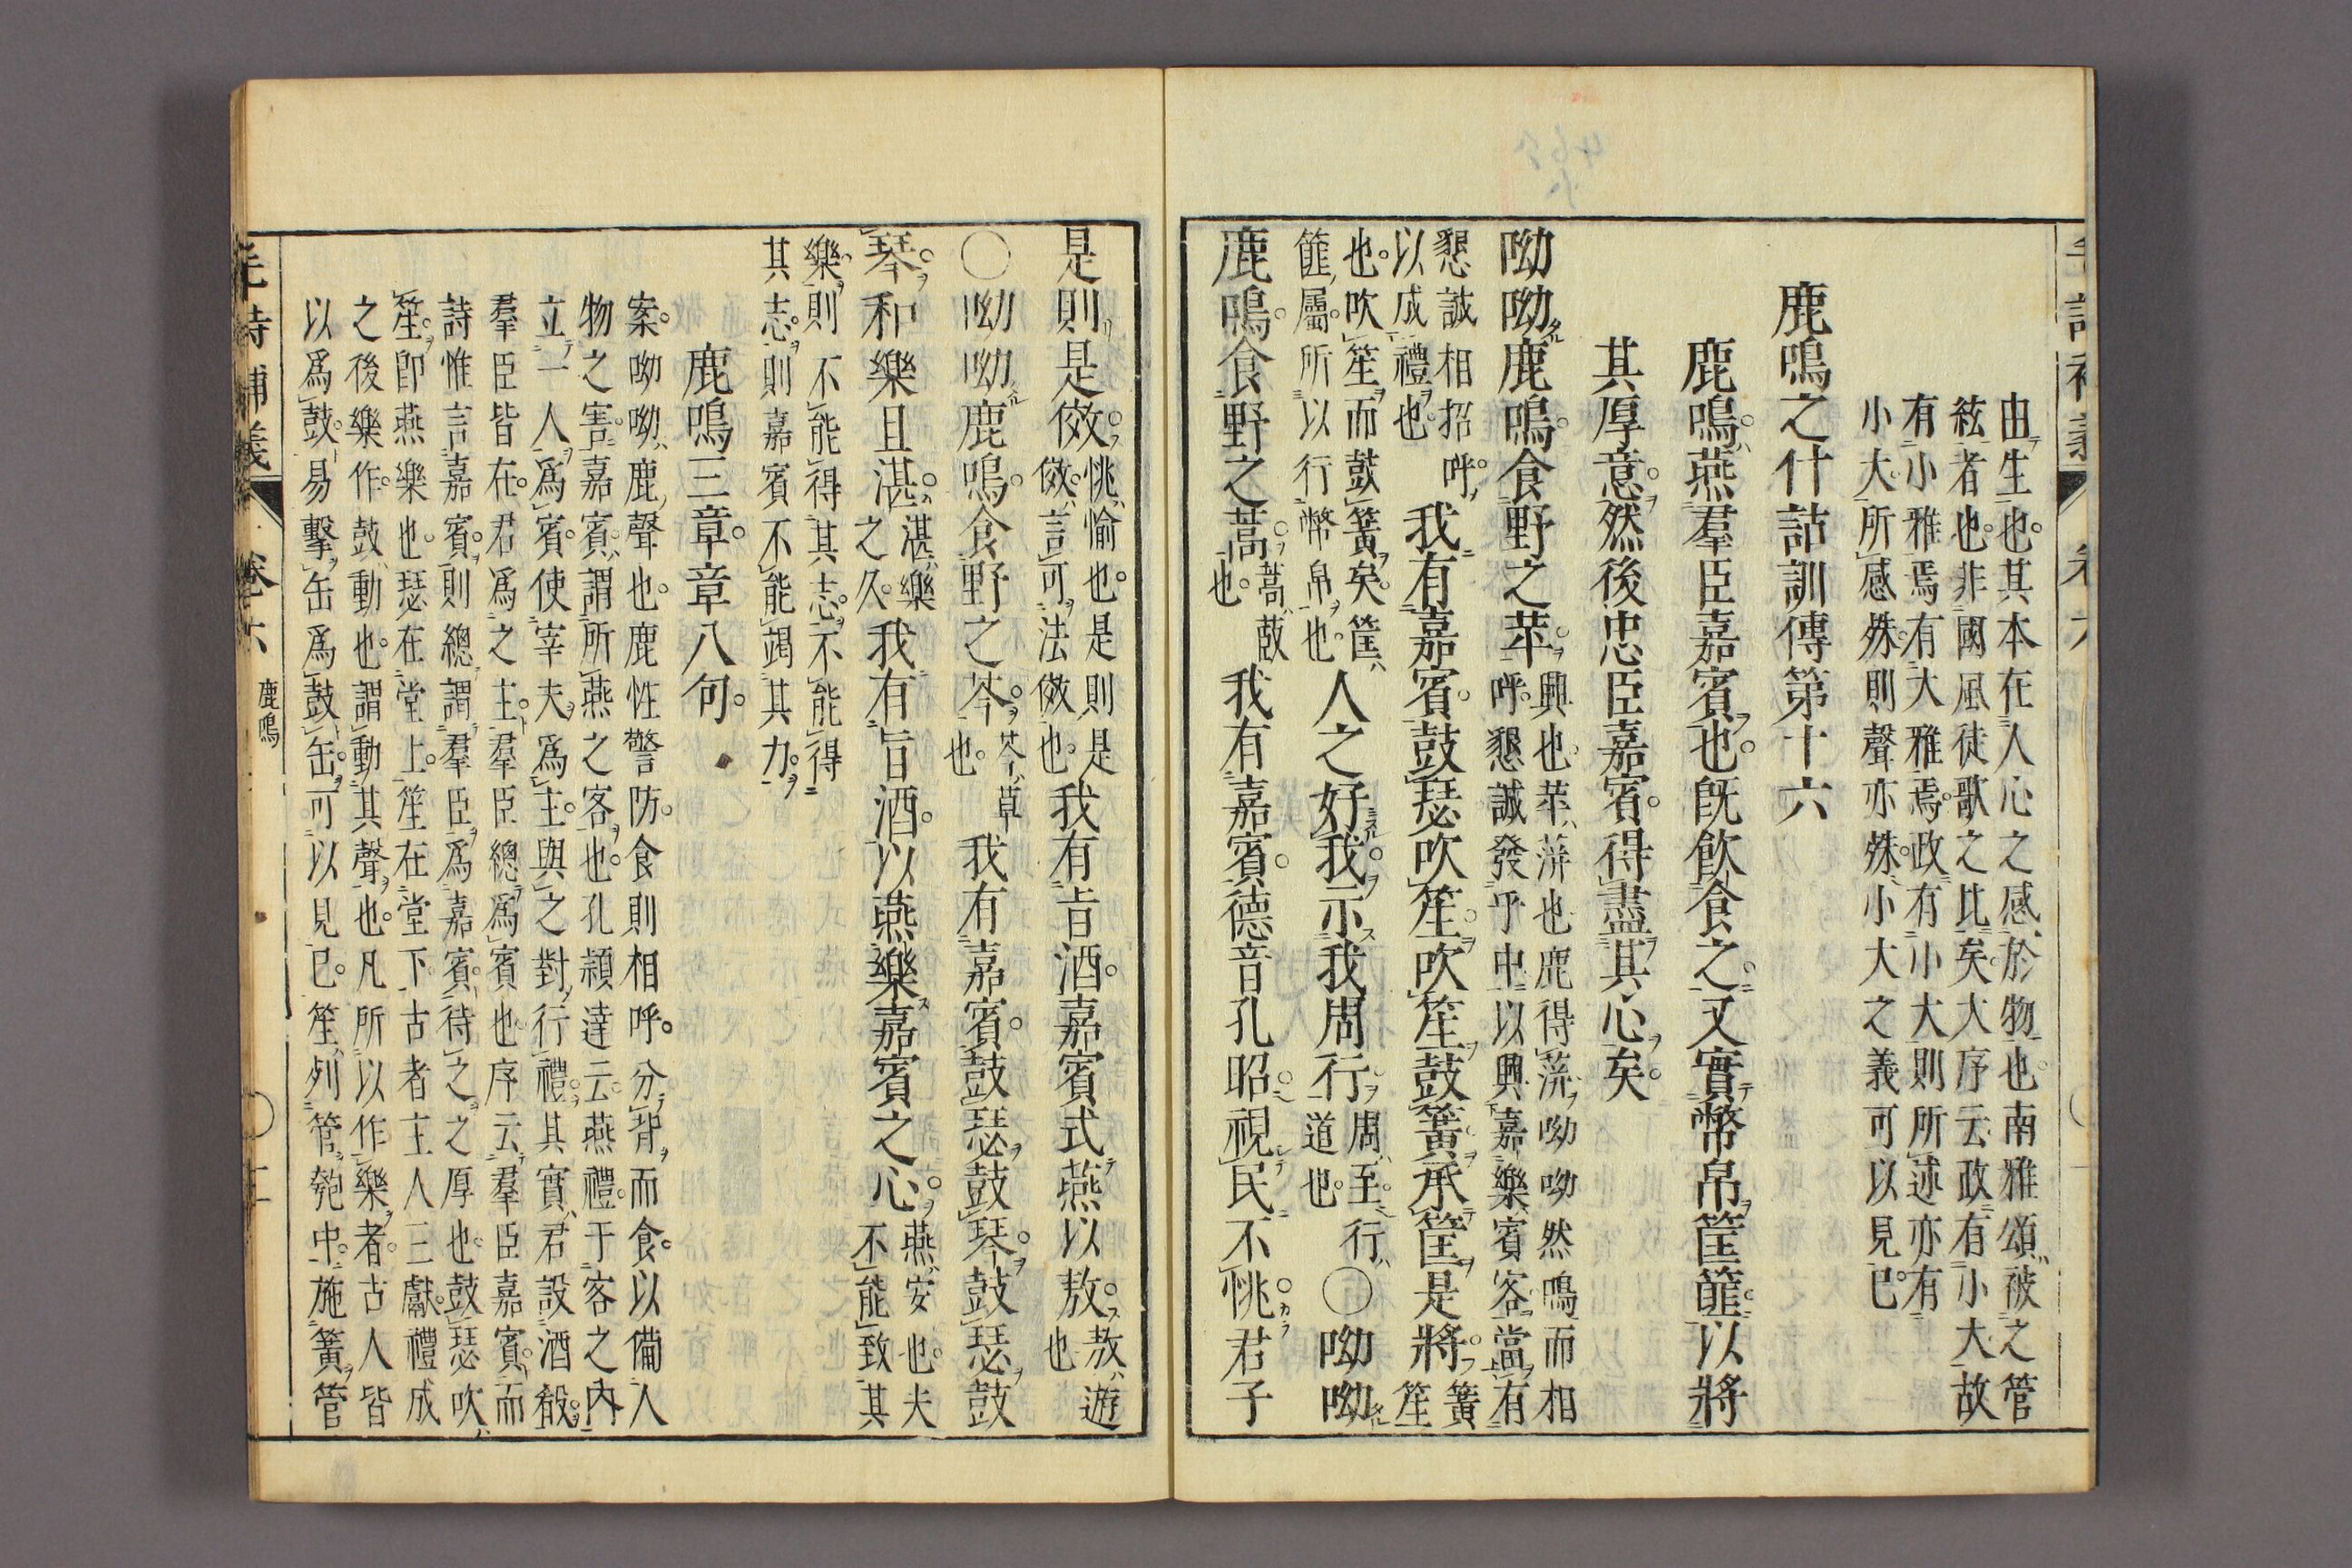 由生也其本在人心之感於物也南雅頌被之管
絃者也非國風徒歌之比矣大序云政有小大故
有小雅焉有大雅焉政有小大則所述亦有
小大所感殊則聲亦殊小大之義可以見已
鹿鳴之什詁訓傳第十六
鹿鳴燕羣臣嘉賓也既飲食之又實幣帛筐篚以將
其厚意然後忠臣嘉賓得盡其心矣
呦呦鹿鳴食野之苹
興也苹蓱也鹿得蓱呦呦然鳴而相
呼懇誠發乎中以興嘉樂賓客當有
懇誠相招呼
以成禮也
我有嘉賓鼓瑟吹笙吹笙鼓簧承筐是將
簧
笙
也吹笙而鼓簧矣筐
篚屬所以行幣帛也
人之好我示我周行
周至行
道也
〇呦呦
鹿鳴食野之蒿
蒿菣
也
我有嘉賓德音孔昭視民不恌君子
是則是傚
恌愉也是則是
傚言可法傚也
我有旨酒嘉賓式燕以敖
敖遊
也
〇呦呦鹿鳴食野之芩
芩草
也
我有嘉賓鼓瑟鼓琴鼓瑟鼓
琴和樂且湛
湛樂
之久
我有旨酒以燕樂嘉賓之心
燕安也夫
不能致其
樂則不能得其志不能得
其志則嘉賓不能竭其力
鹿鳴三章章八句
案呦呦鹿聲也鹿性警防食則相呼分背而食以備人
物之害嘉賓謂所燕之客也孔穎達云燕禮于客之內
立一人爲賓使宰夫爲主與之對行禮其實君設酒殽
羣臣皆在君爲之主羣臣總爲賓也序云羣臣嘉賓而
詩惟言嘉賓則總謂羣臣爲嘉賓待之之厚也鼓瑟吹
笙卽燕樂也瑟在堂上笙在堂下古者主人三獻禮成
之後樂作鼓動也謂動其聲也凡所以作樂者古人皆
以爲鼓易擊缶爲鼓缶可以見已笙列管匏中施簧管
毛詩補義 卷六 鹿鳴